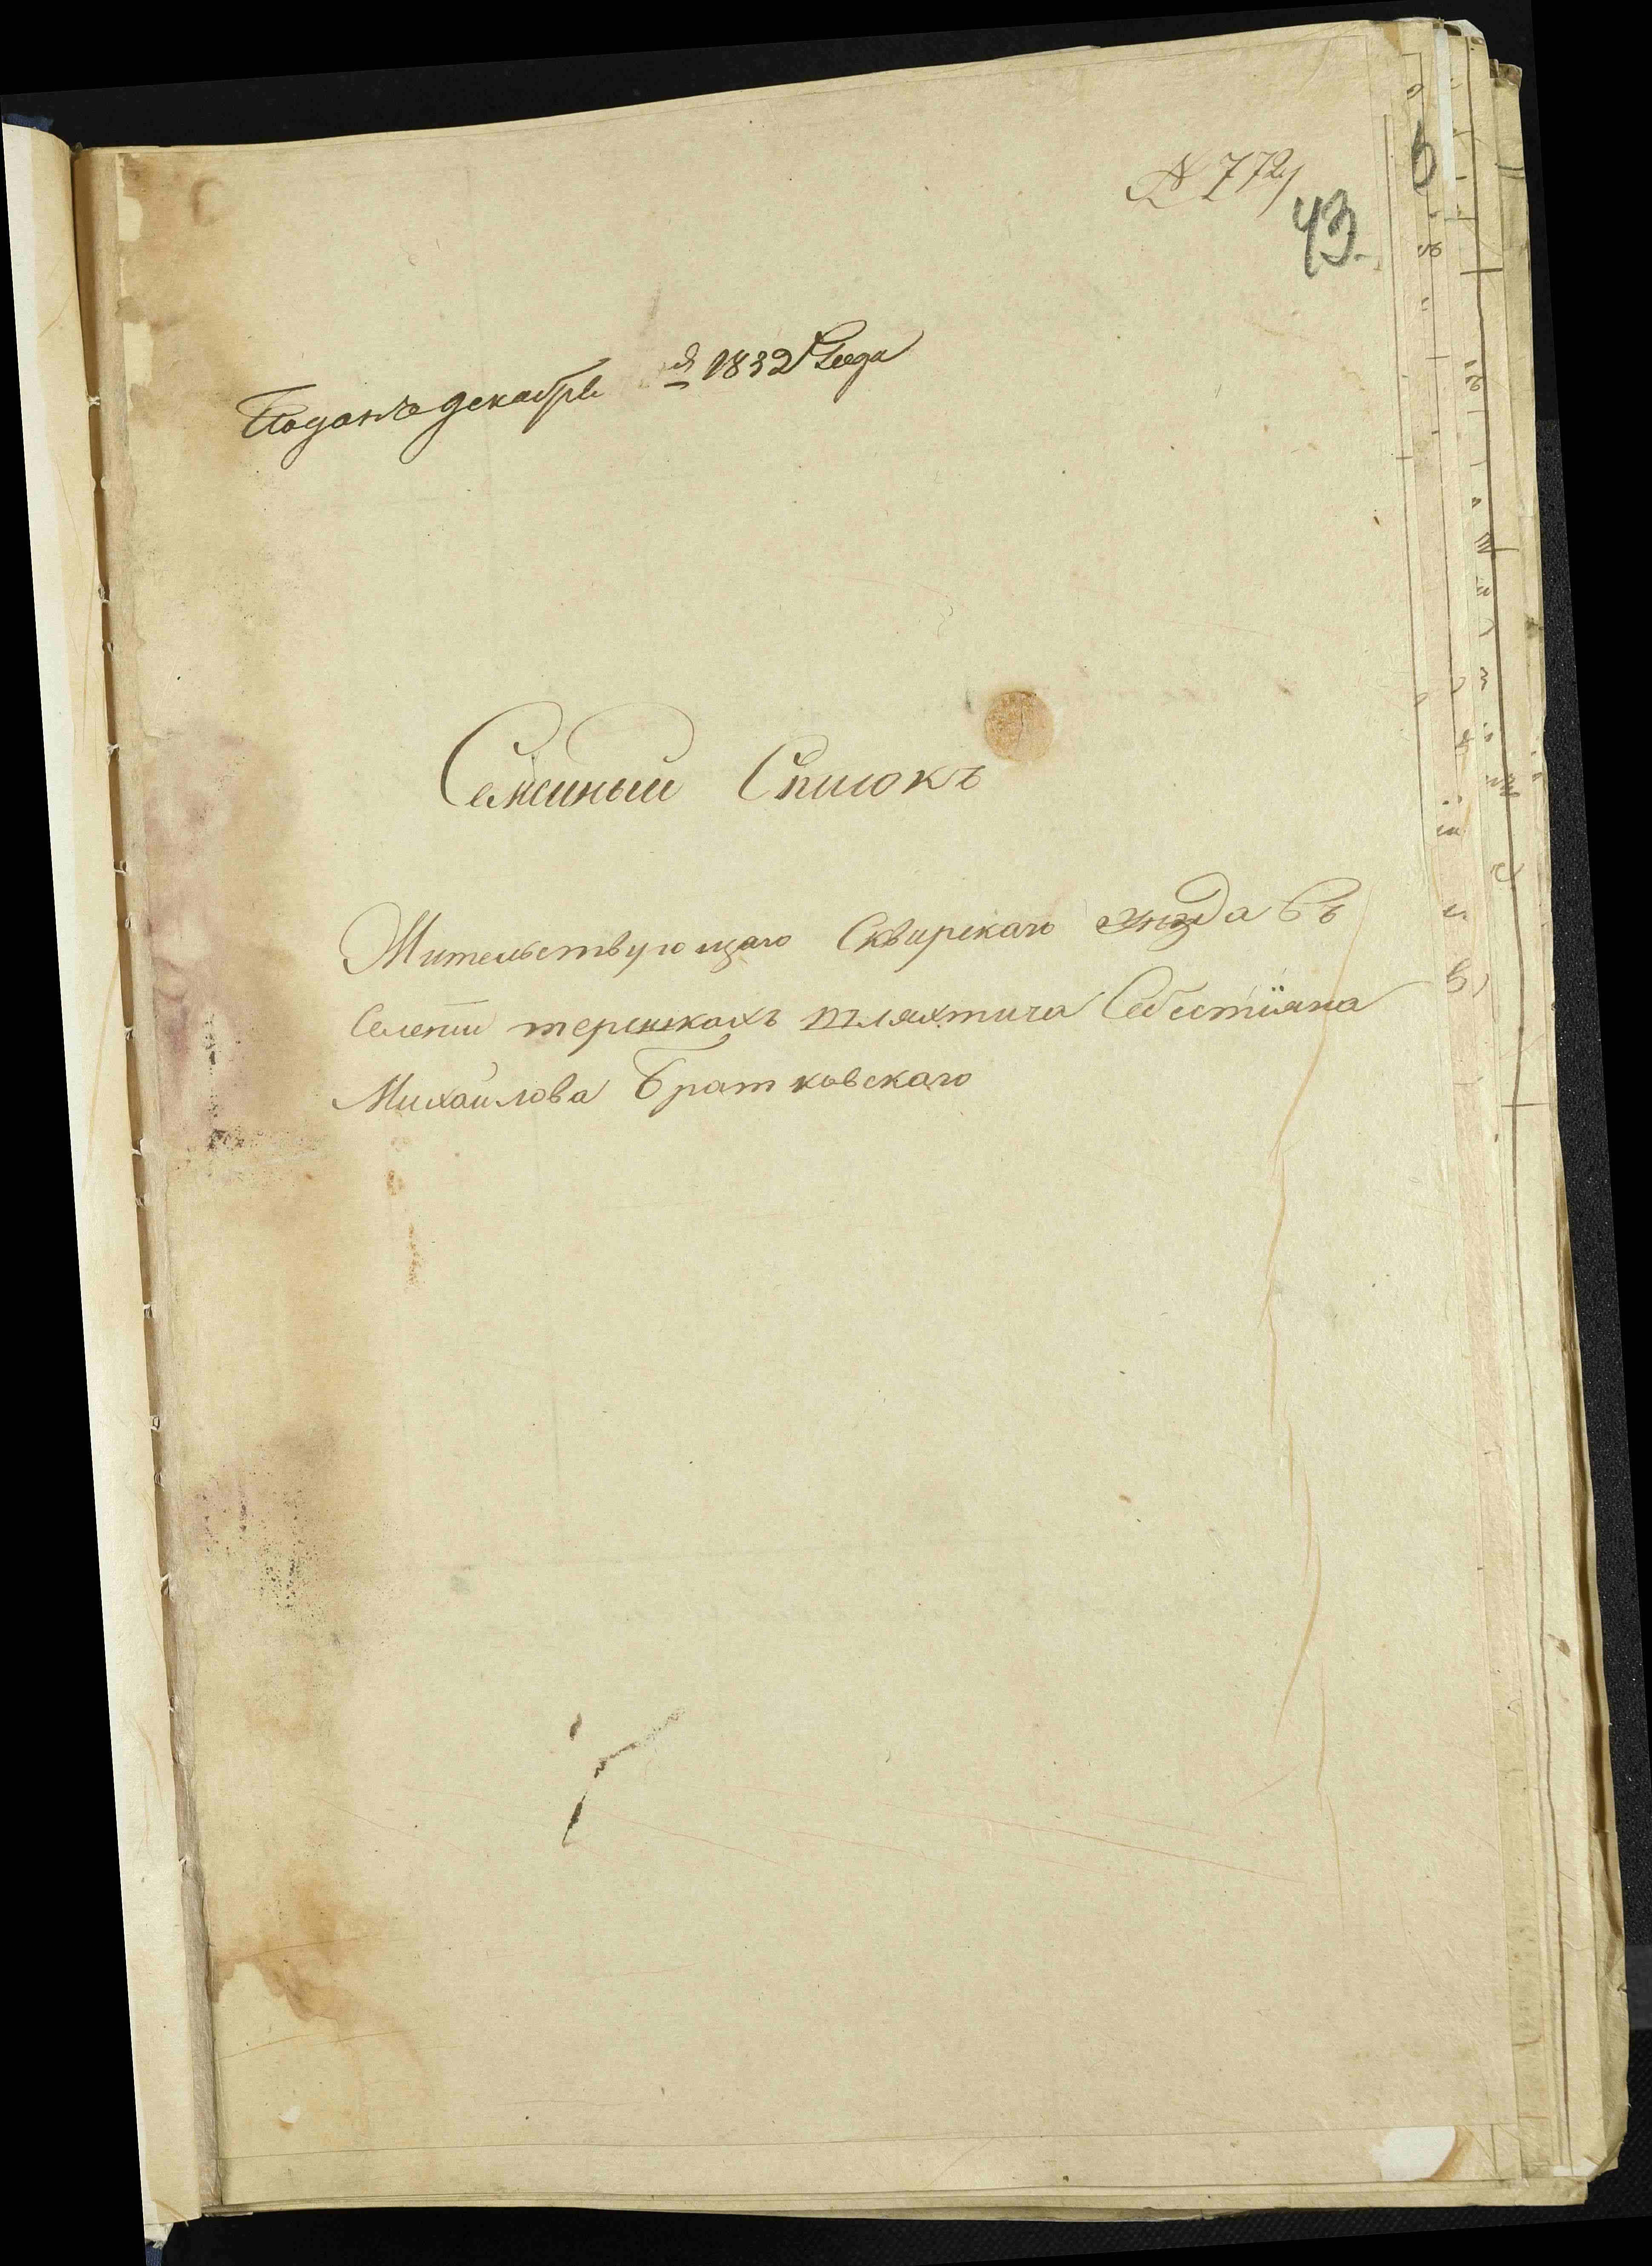 № 772
43.
Поданъ декабря я 1832 Года
Семейный Списокъ
Жительствующаго Сквирскаго уезда въ
Селенiи терешкахъ шляхтича Себестїяна
Михайлова Братковскаго